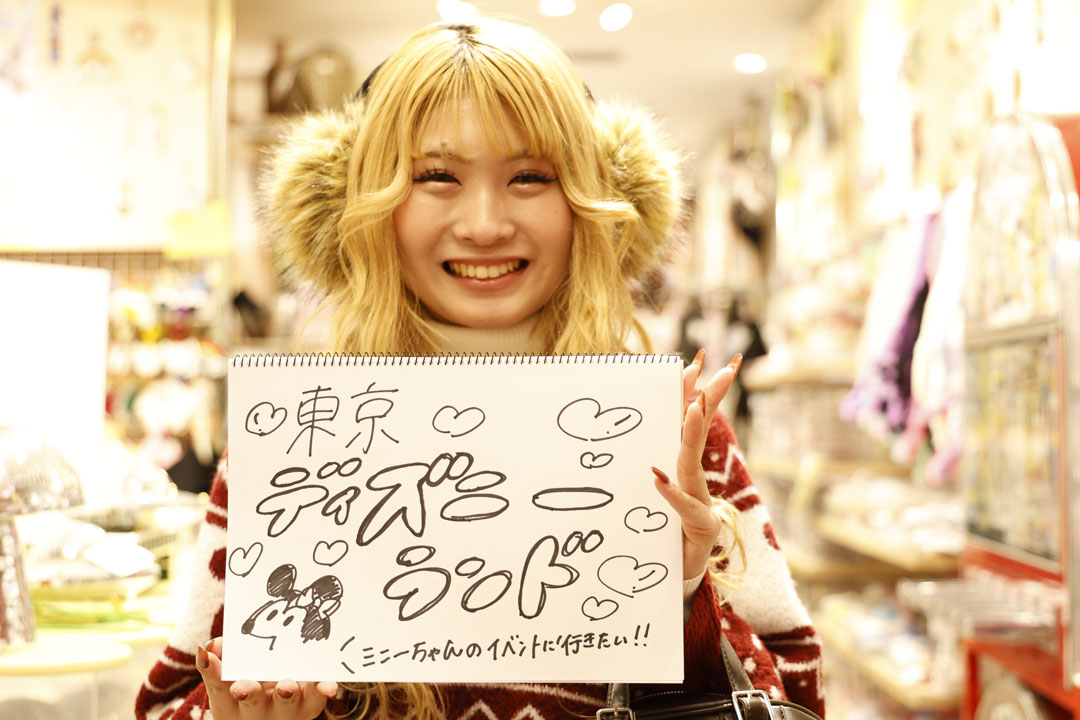 東京
ディズニー
ランド
ミニーちゃんのイベントに行きたい!!